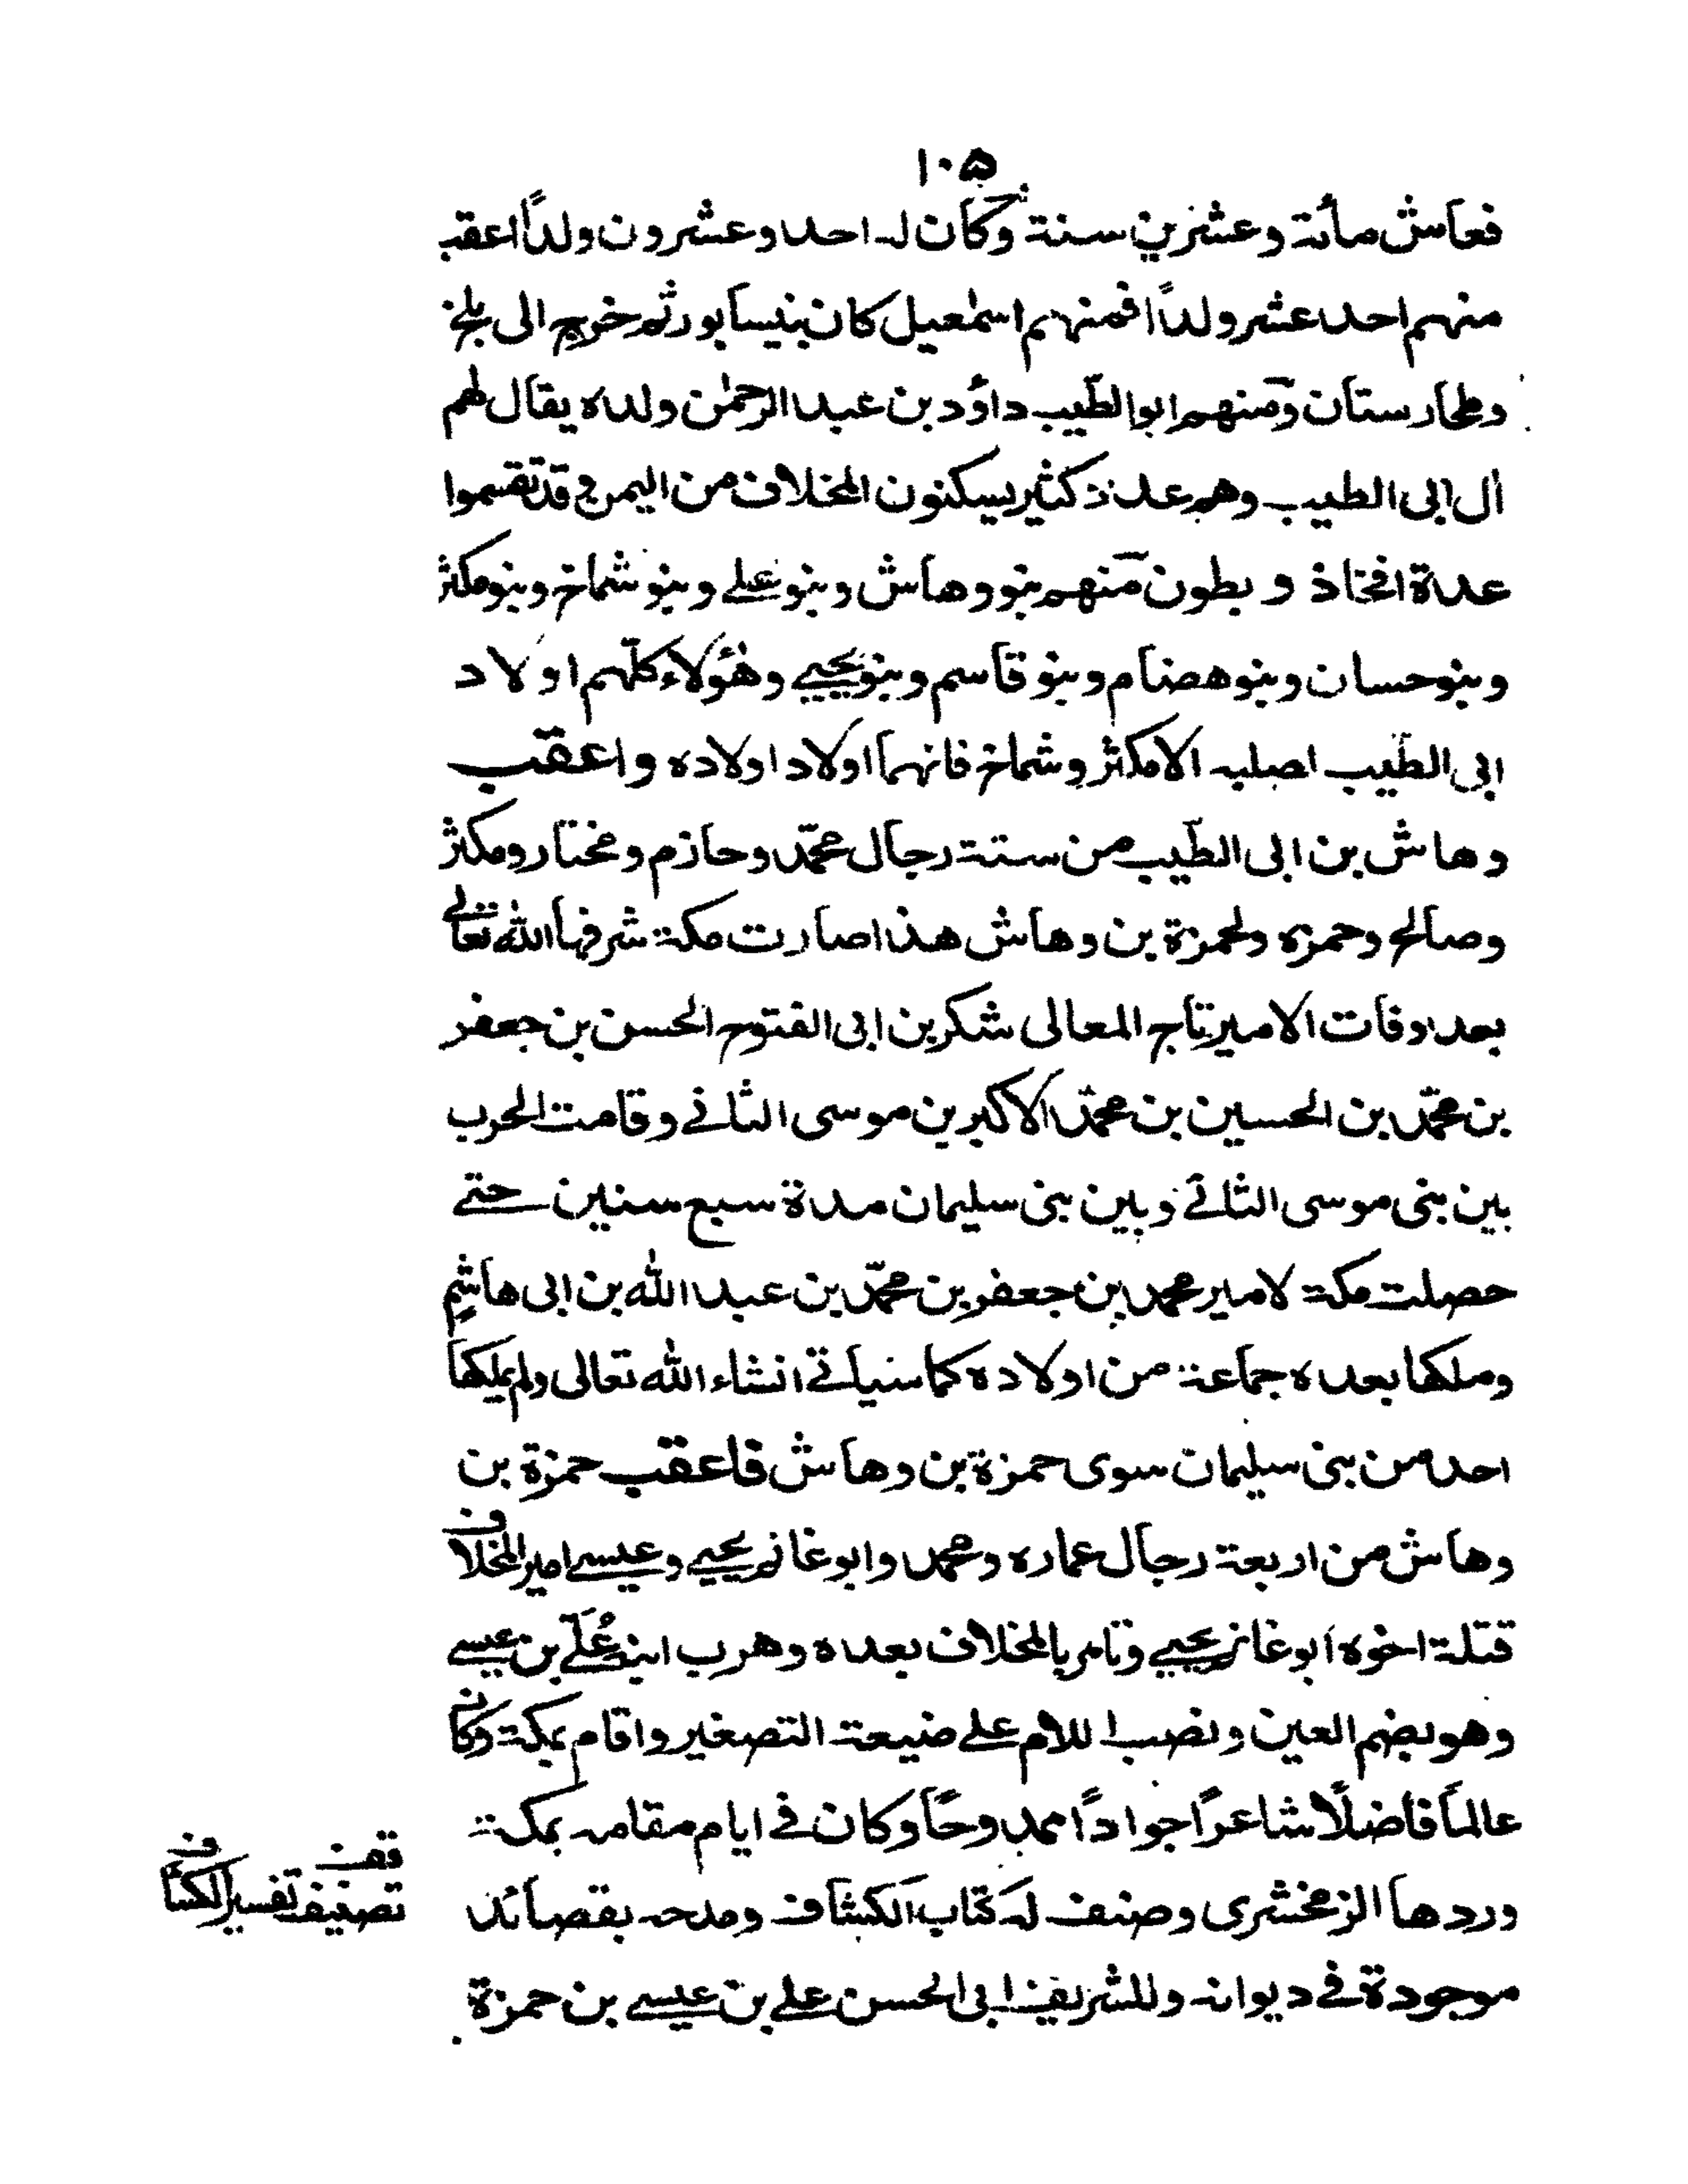 ١٠۵
فعاش مأنة وعشرين سنة وكان له احد وعشرون ولدًا اعقب
منهم احد عشر ولدًا فمنهم اسمٰعيل كان بنيسابور ثم خرج الى بلخ
وطخارستان ومنهم ابوالطيّب داؤد بن عبد الرحمٰن ولده يقال لهم
ال ابى الطيب وهم عدد كثير يسكنون المخلاف من اليمن قد تقسموا
عدة افخاذ و بطون منهم بنو وهاش وبنو على وبنو شماخ وبنو مكثر
وبنو حسان وبنو هضام وبنو قاسم وبنو يحيى وهٰؤلاء كلّهم اولاد
ابى الطيّب اصلبه الا مكثر وشماخ فانهما اولاد اولاده واعقب
وهاش بن ابى الطيّب من ستة رجال محمّد وحازم ومختار ومكثر
وصالح وحمزه ولحمزة بن وهاش هذا صارت مكة شرفها الله تعالى
بعد وفات الامير تاج المعالى شكر بن ابى الفتوح الحسن بن جعفر
بن محمّد بن الحسين بن محمّد الاكبر بن موسى الثانى وقامت الحرب
بين بنى موسى الثانى وبين بنى سليمان مدة سبع سنين حتى
حصلت مكة لامير محمد بن جعفر بن محمّد بن عبد الله بن ابى هاشم
وملكها بعده جماعة من اولاده كما سنياتى انشاء الله تعالى ولم يملكها
احد من بنى سليمان سوى حمزة بن وهاش فاعقب حمزة بن
وهاش من اربعة رجال عماره ومحمد وابو غانم يحيى وعيسى امير المخلاف
قتلة اخوه ابو غانم يحيى وتامر بالمخلاف بعده وهرب ابنه عُلَىّ بن عيسى
وهو بضم العين ونصب اللام على ضيعة التصغير واقام بمكة وكان
عالمًا فاضلًا شاعرًا جوادًا ممدوحًا وكان فى ايام مقامه بمكة
وردها الزمخشرى وصنف له كتاب الكشاف ومدحه بقصائد
موجودة فى ديوانه وللشريف ابى الحسن على بن عيسى بن حمزة
تصنيف تفسير الكشاف